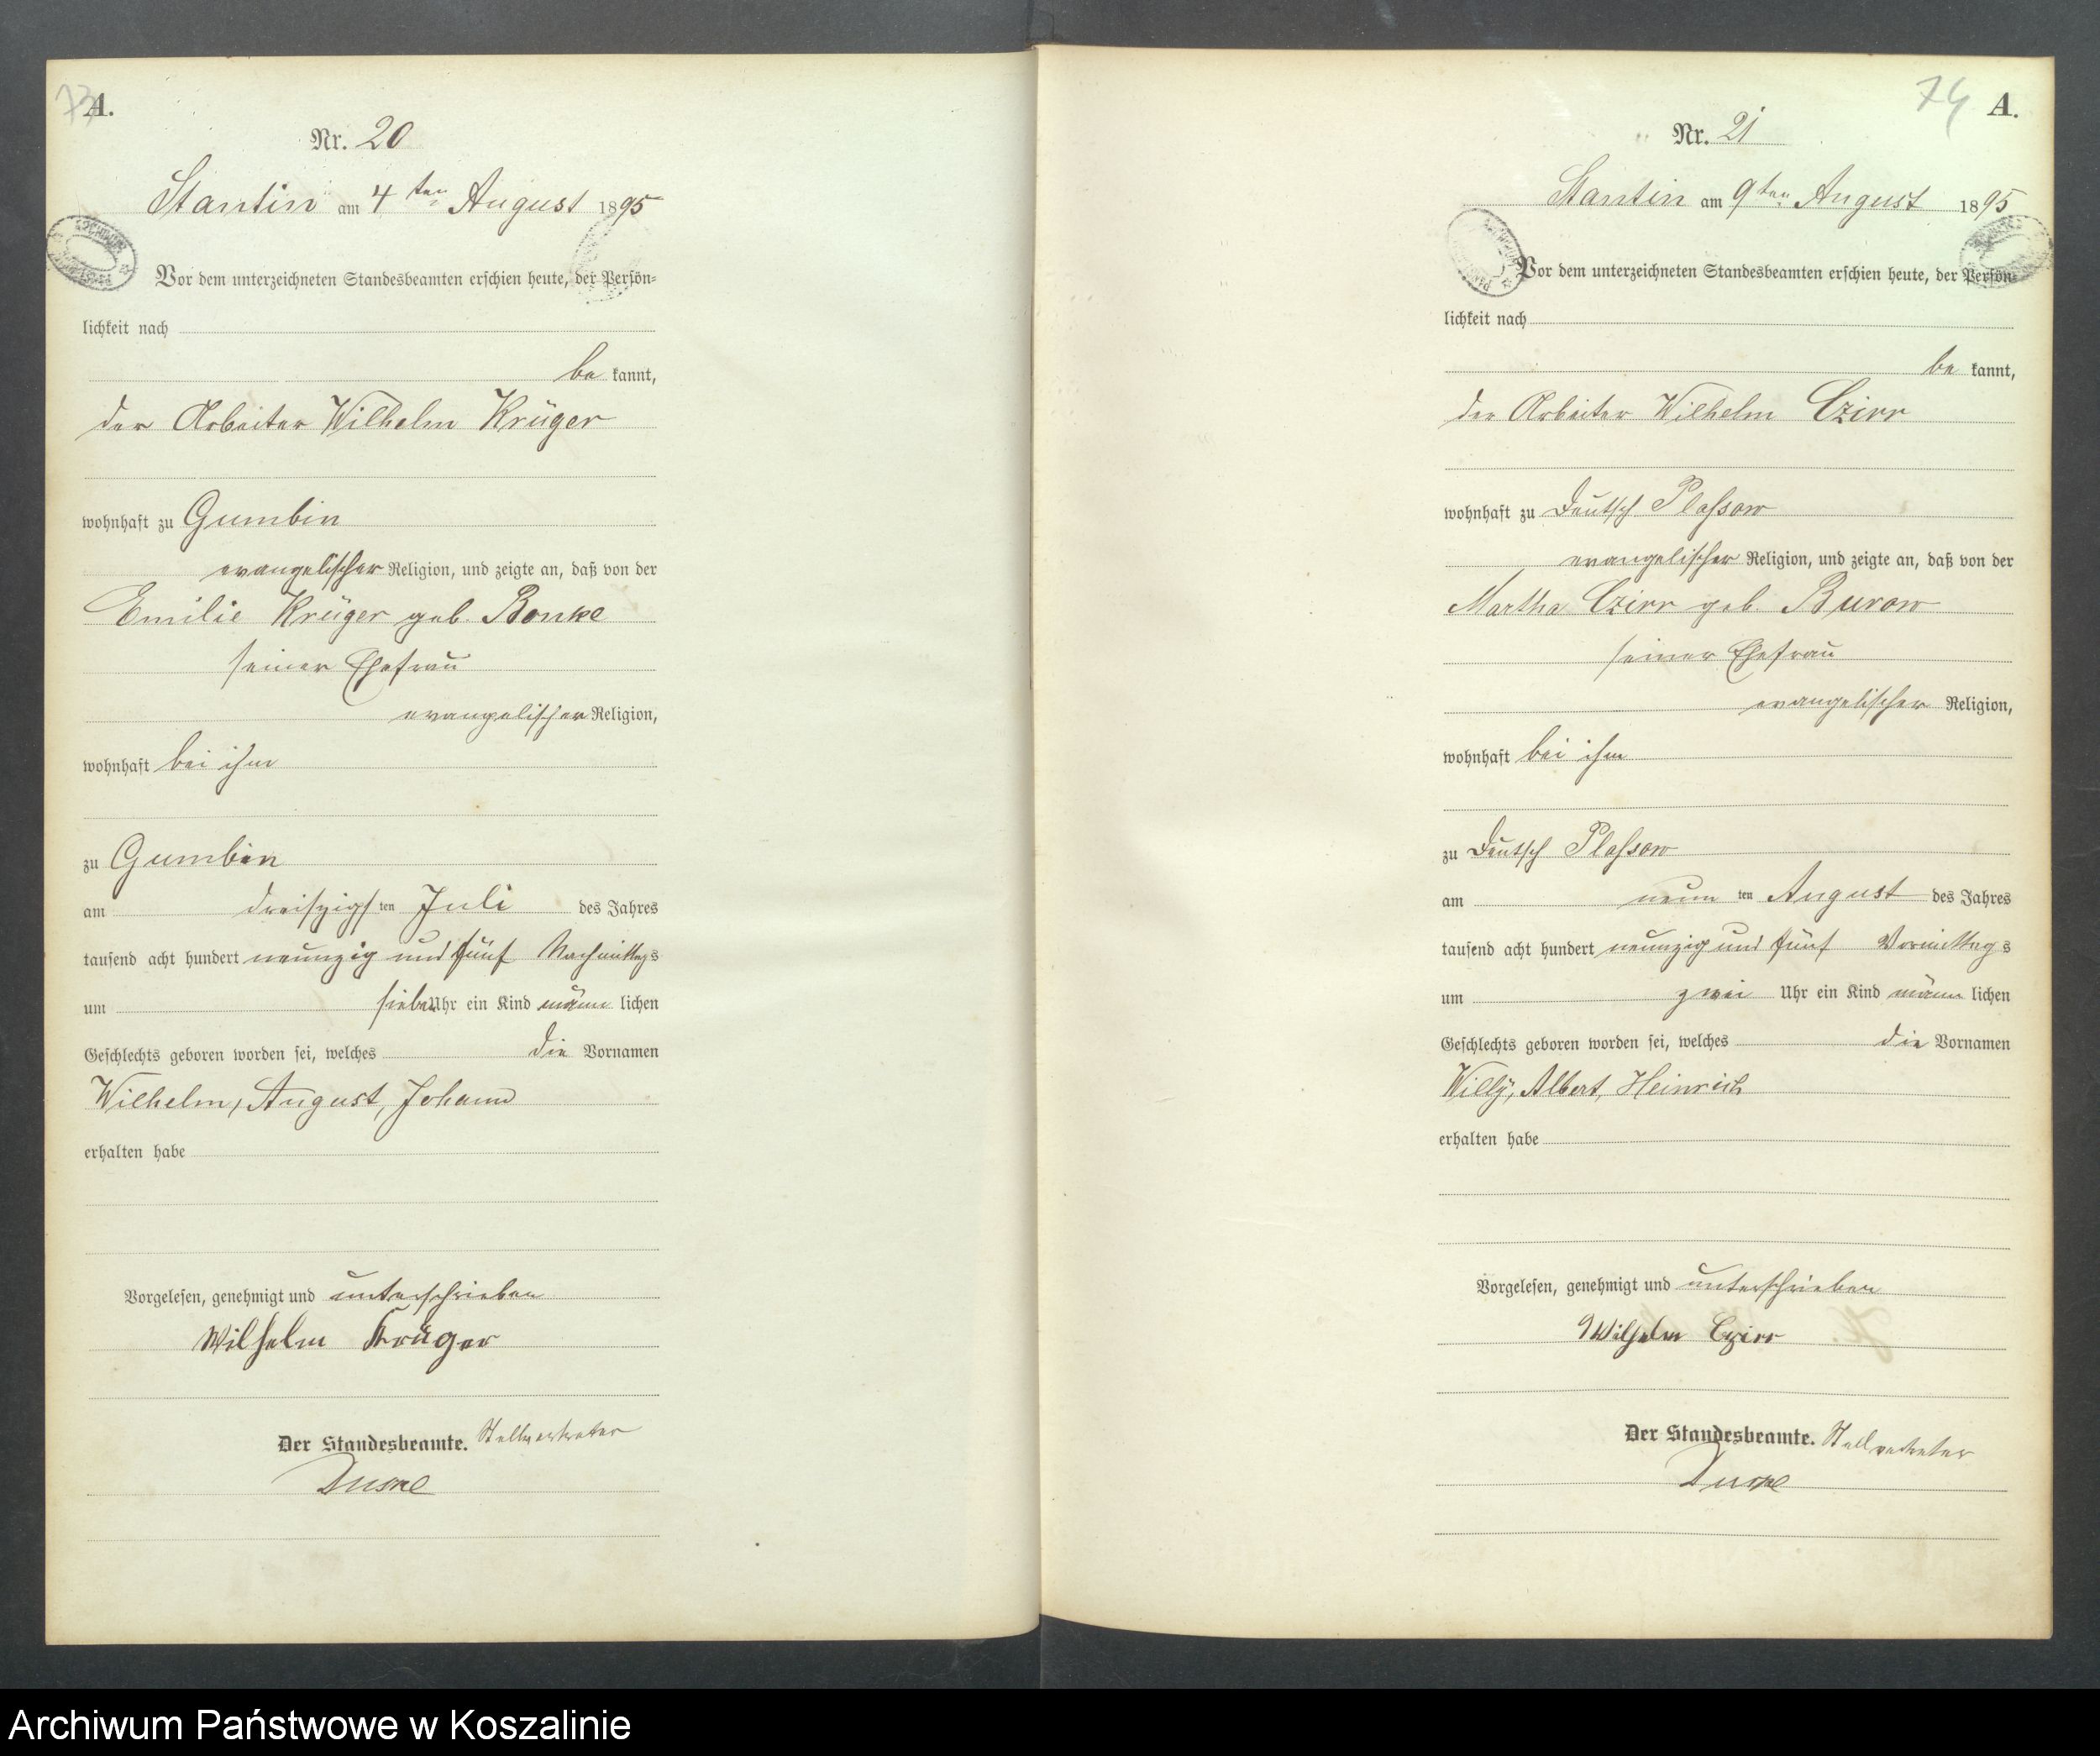 73
A.
Nr. 20
Stantin am 4ten August 1895
Vor dem unterzeichneten Standesbeamten erschien heute, der Persön-
lichkeit nach
be kannt,
der Arbeiter Wilhelm Krüger
wohnhaft zu Gumbin
evangelischer Religion, und zeigte an, daß von der
Emilie Krüger geb. Bonke
seiner Ehefrau
evangelischer Religion,
wohnhaft bei ihm
zu Gumbin
am dreiszigsten Juli des Jahres
tausend acht hundert neunzig und fünf Nachmittags
um sieben Uhr ein Kind männlichen
Geschlechts geboren worden sei, welches die Vornamen
Wilhelm, August, Johann
erhalten habe
Vorgelesen, genehmigt und unterschrieben
Wilhelm Krüger
Der Standesbeamte. Stellvertreter
74
A.
Nr. 21
Stantin am 9ten August 1895
Vor dem unterzeichneten Standesbeamten erschien heute, der Persön-
lichkeit nach
be kannt,
der Arbeiter Wilhelm Czirr
wohnhaft zu Deutsch Plassow
evangelischer Religion, und zeigte an, daß von der
Martha Czirr geb. Burow
seiner Ehefrau
evangelischer Religion,
wohnhaft bei ihm
zu Deutsch Plassow
am neunten August des Jahres
tausend acht hundert neunzig und fünf Vormittags
um zwei Uhr ein Kind männlichen
Geschlechts geboren worden sei, welches die Vornamen
Willy, Albert, Heinrich
erhalten habe
Vorgelesen, genehmigt und unterschrieben
Wilhelm Czirr
Der Standesbeamte. Stellvertreter
Archiwum Państwowe w Koszalinie